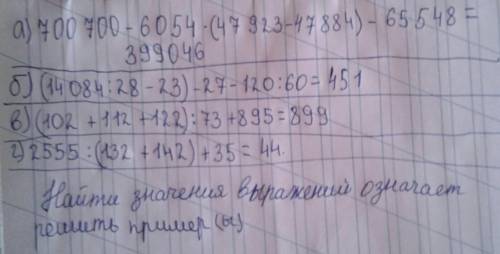 а) 700 700 - 6054 · (47 923 - 47 884) - 65 548 =
399046
б) (14 084 : 28 - 23) - 27 - 120 : 60 = 451
в) (102 + 112 + 122) : 73 + 895 = 899
г) 2555 : (132 + 142) + 35 = 44.
Найти значения выражений означает
решить пример(ы)